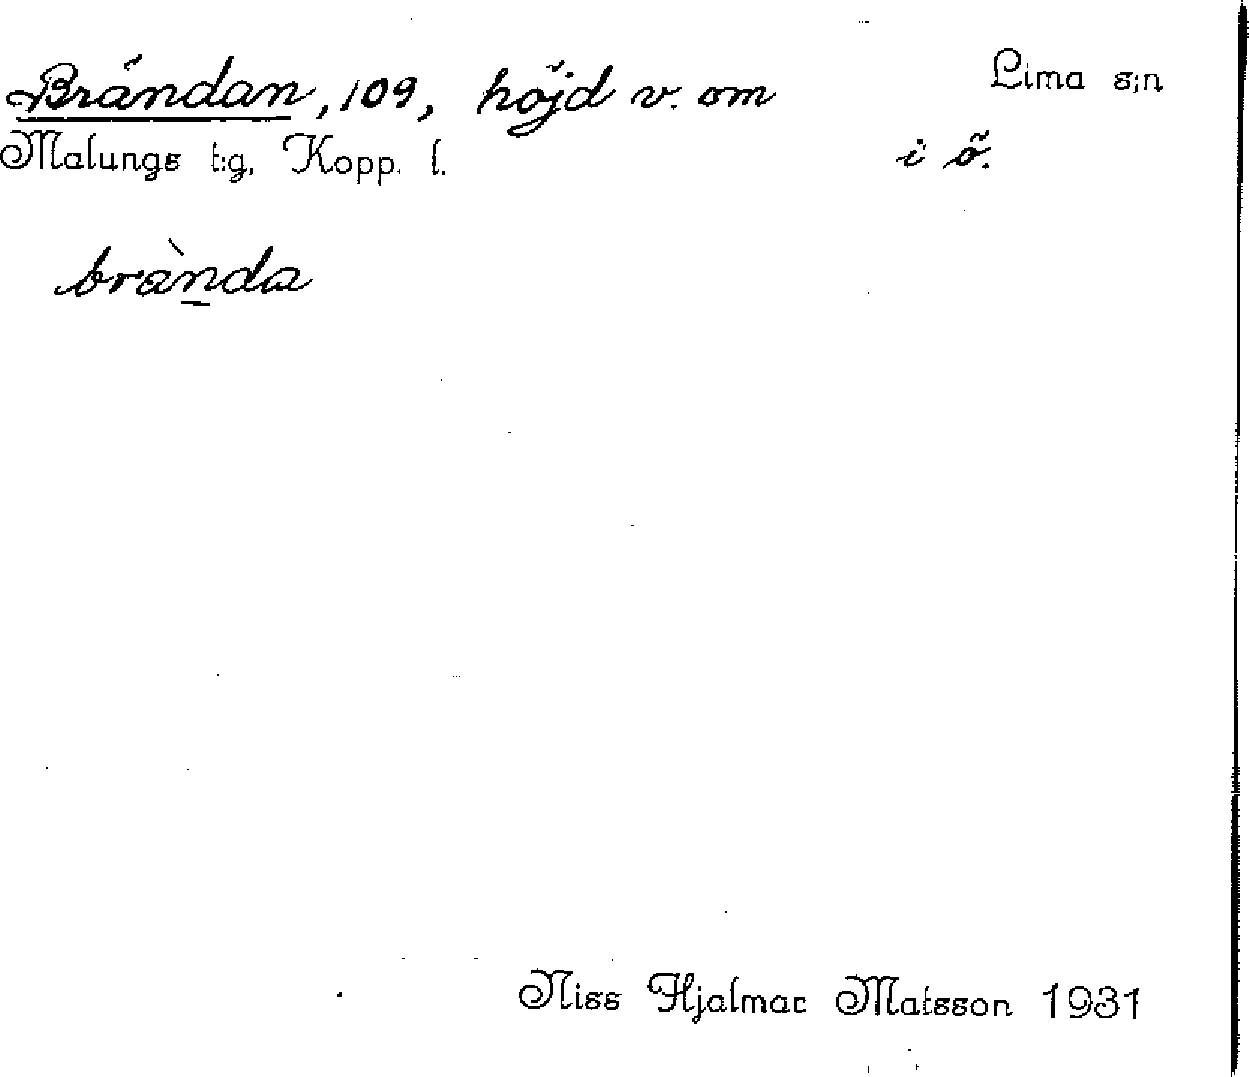 Brändan, 109, höjd v. om
Lima s:n
Malungs t:g, Kopp. l.
i ö.
brànda
Niss Hjalmar Matsson 1931